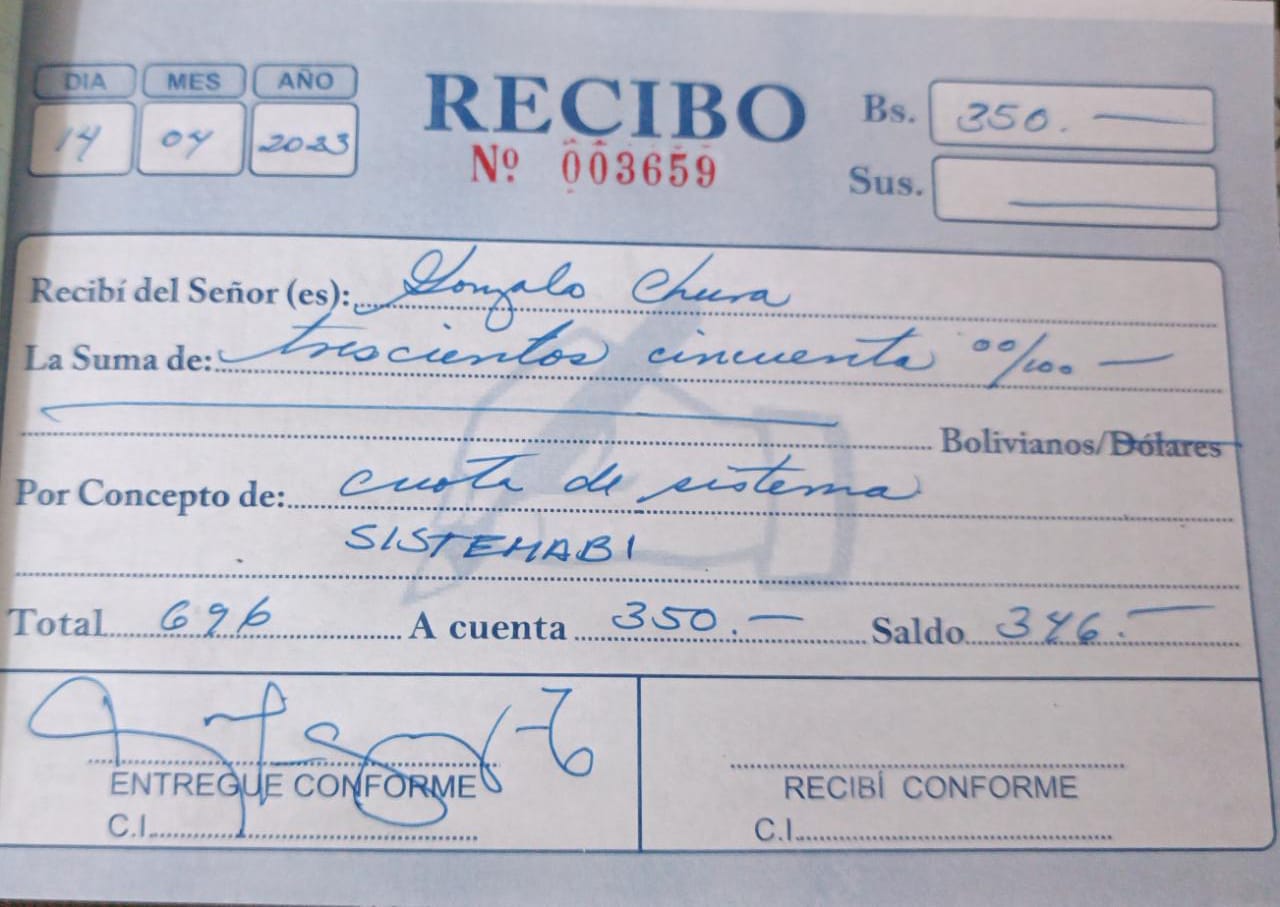 DIA MES AÑO
14 04 2023
RECIBO
Nº 003659
Bs. 350.—
Sus. —
Recibí del Señor (es): Gonzalo Chura
La Suma de: trescientos cincuenta 00/100 —
Bolivianos/Dólares
Por Concepto de: cuota de sistema
SISTEMABI
Total 696 A cuenta 350.— Saldo 346.—
ENTREGUE CONFORME RECIBÍ CONFORME
C.I. C.I.